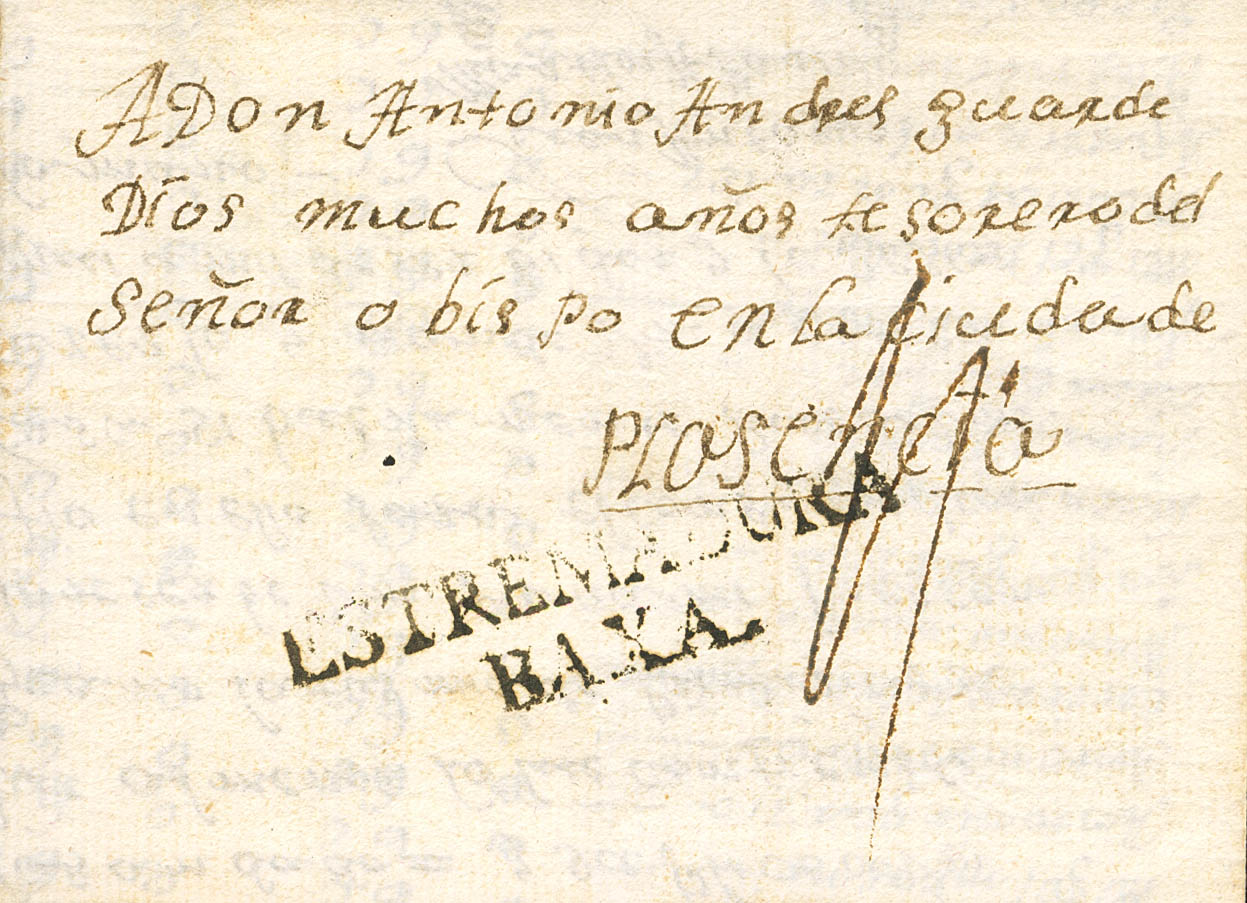 A Don Antonio Andres guarde
Dios muchos años tesorero del
señor obispo en la ciuda de
Plasencia
ESTREMADURA
BAXA.